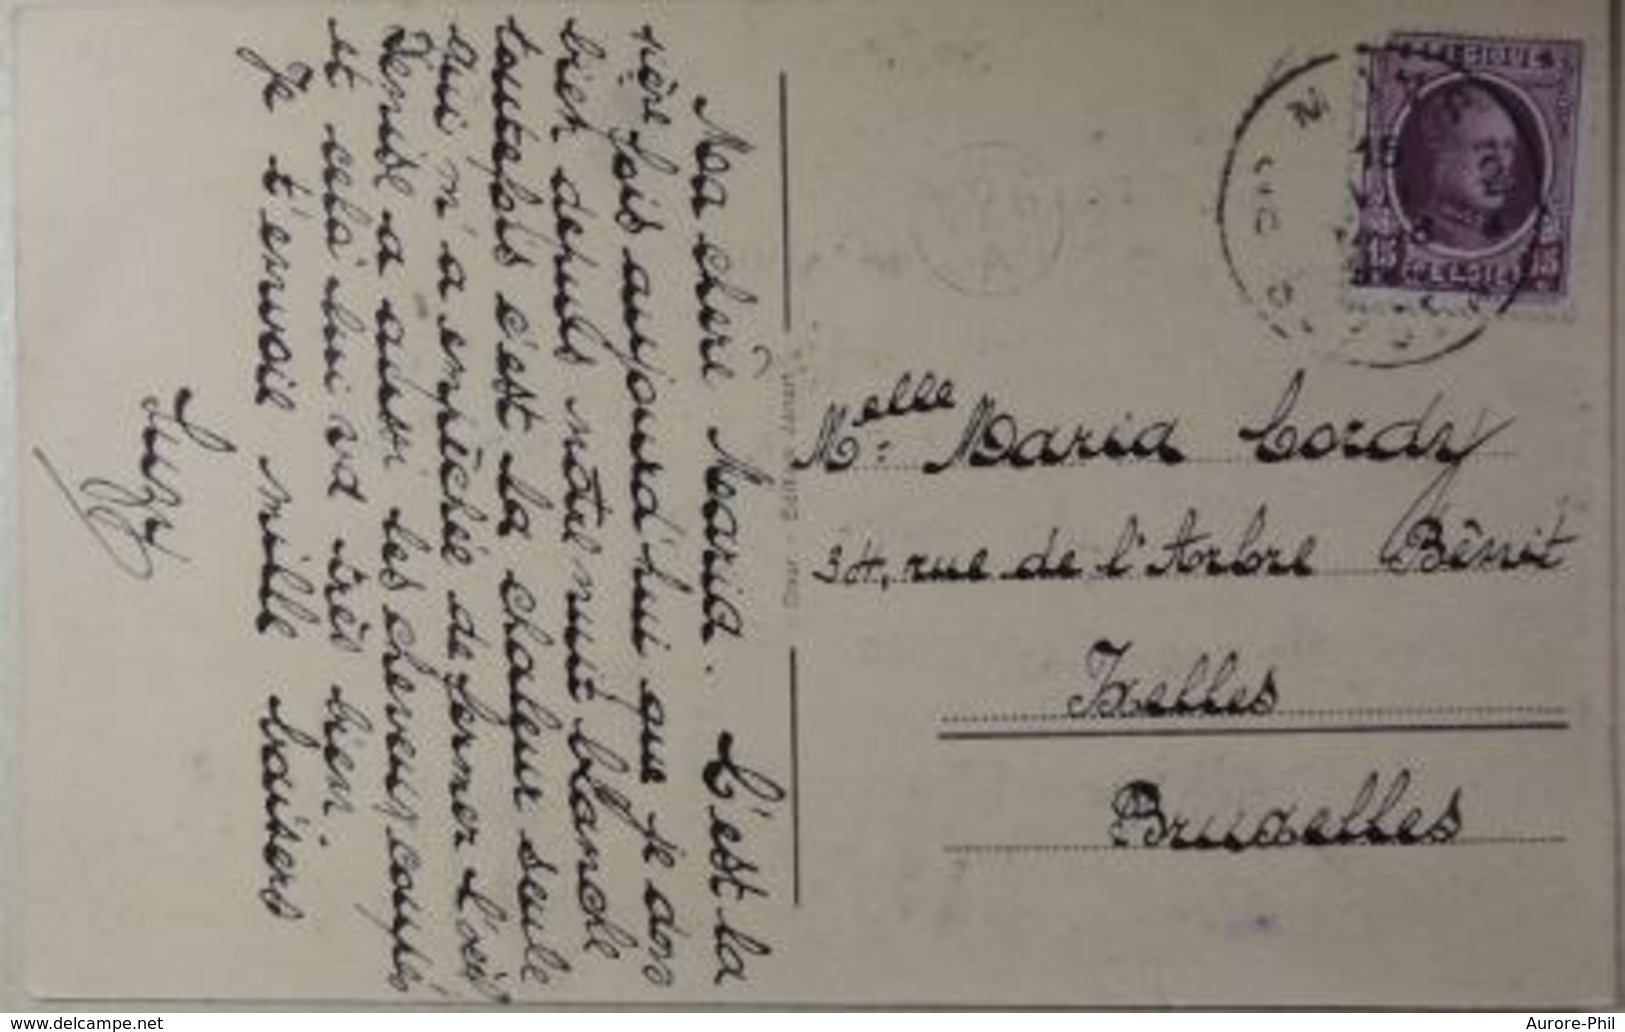 Ma chère Maria. C'est la
1ière fois aujourd'hui que je dors
bien depuis nôtre nuit blanche
toutefois c'est la chaleur seule
qui m'a empêchée de fermer l'œil
Denise a aussi les cheveux coupés
et cela lui va très bien.
Je t'envoie mille baisers
Suzy
BELGIQUE
15 15
BELGIE
Melle Maria Cordy
34, rue de l'Arbre Bénit
Ixelles
Bruxelles
www.delcampe.net
Aurore-Phil